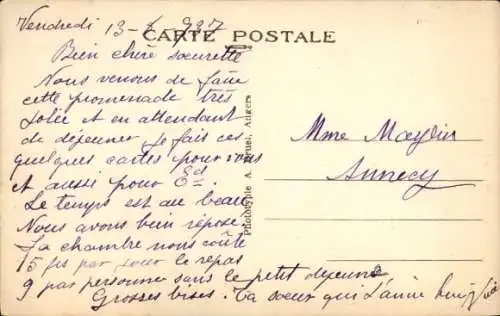 Vendredi 13-8-937
CARTE POSTALE
Bien chère sœurette
Nous venons de faire
cette promenade très
jolie et en attendant
de déjeuner je fais ces
quelques cartes pour vous
et aussi pour Ed.
Le temps est au beau
Nous avons bien reposé
La chambre nous coûte
15 frs par jour le repas
9 par personne sans le petit déjeuné
Grosses bises. Ta sœur qui t'aime bien
Mme Maydin
Annecy
Phototypie A. Bruel, Angers